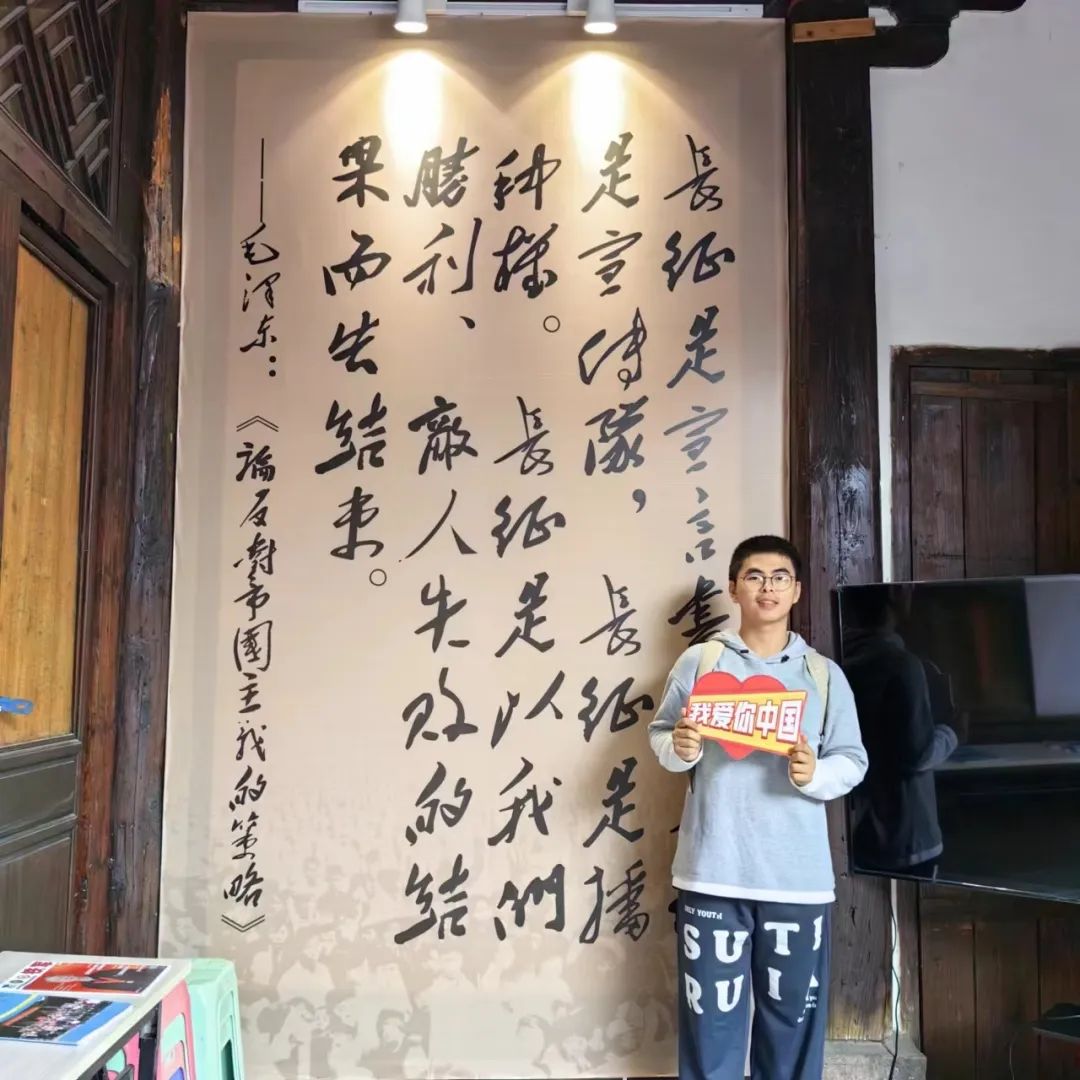 長征是宣言書
是宣傳隊，長征是播
种機。長征是以我們
勝利、敵人失敗的結
果而告結束。
——毛澤东：《論反對帝國主義的策略》
我爱你中国
YOUTH
SUTI
RUI